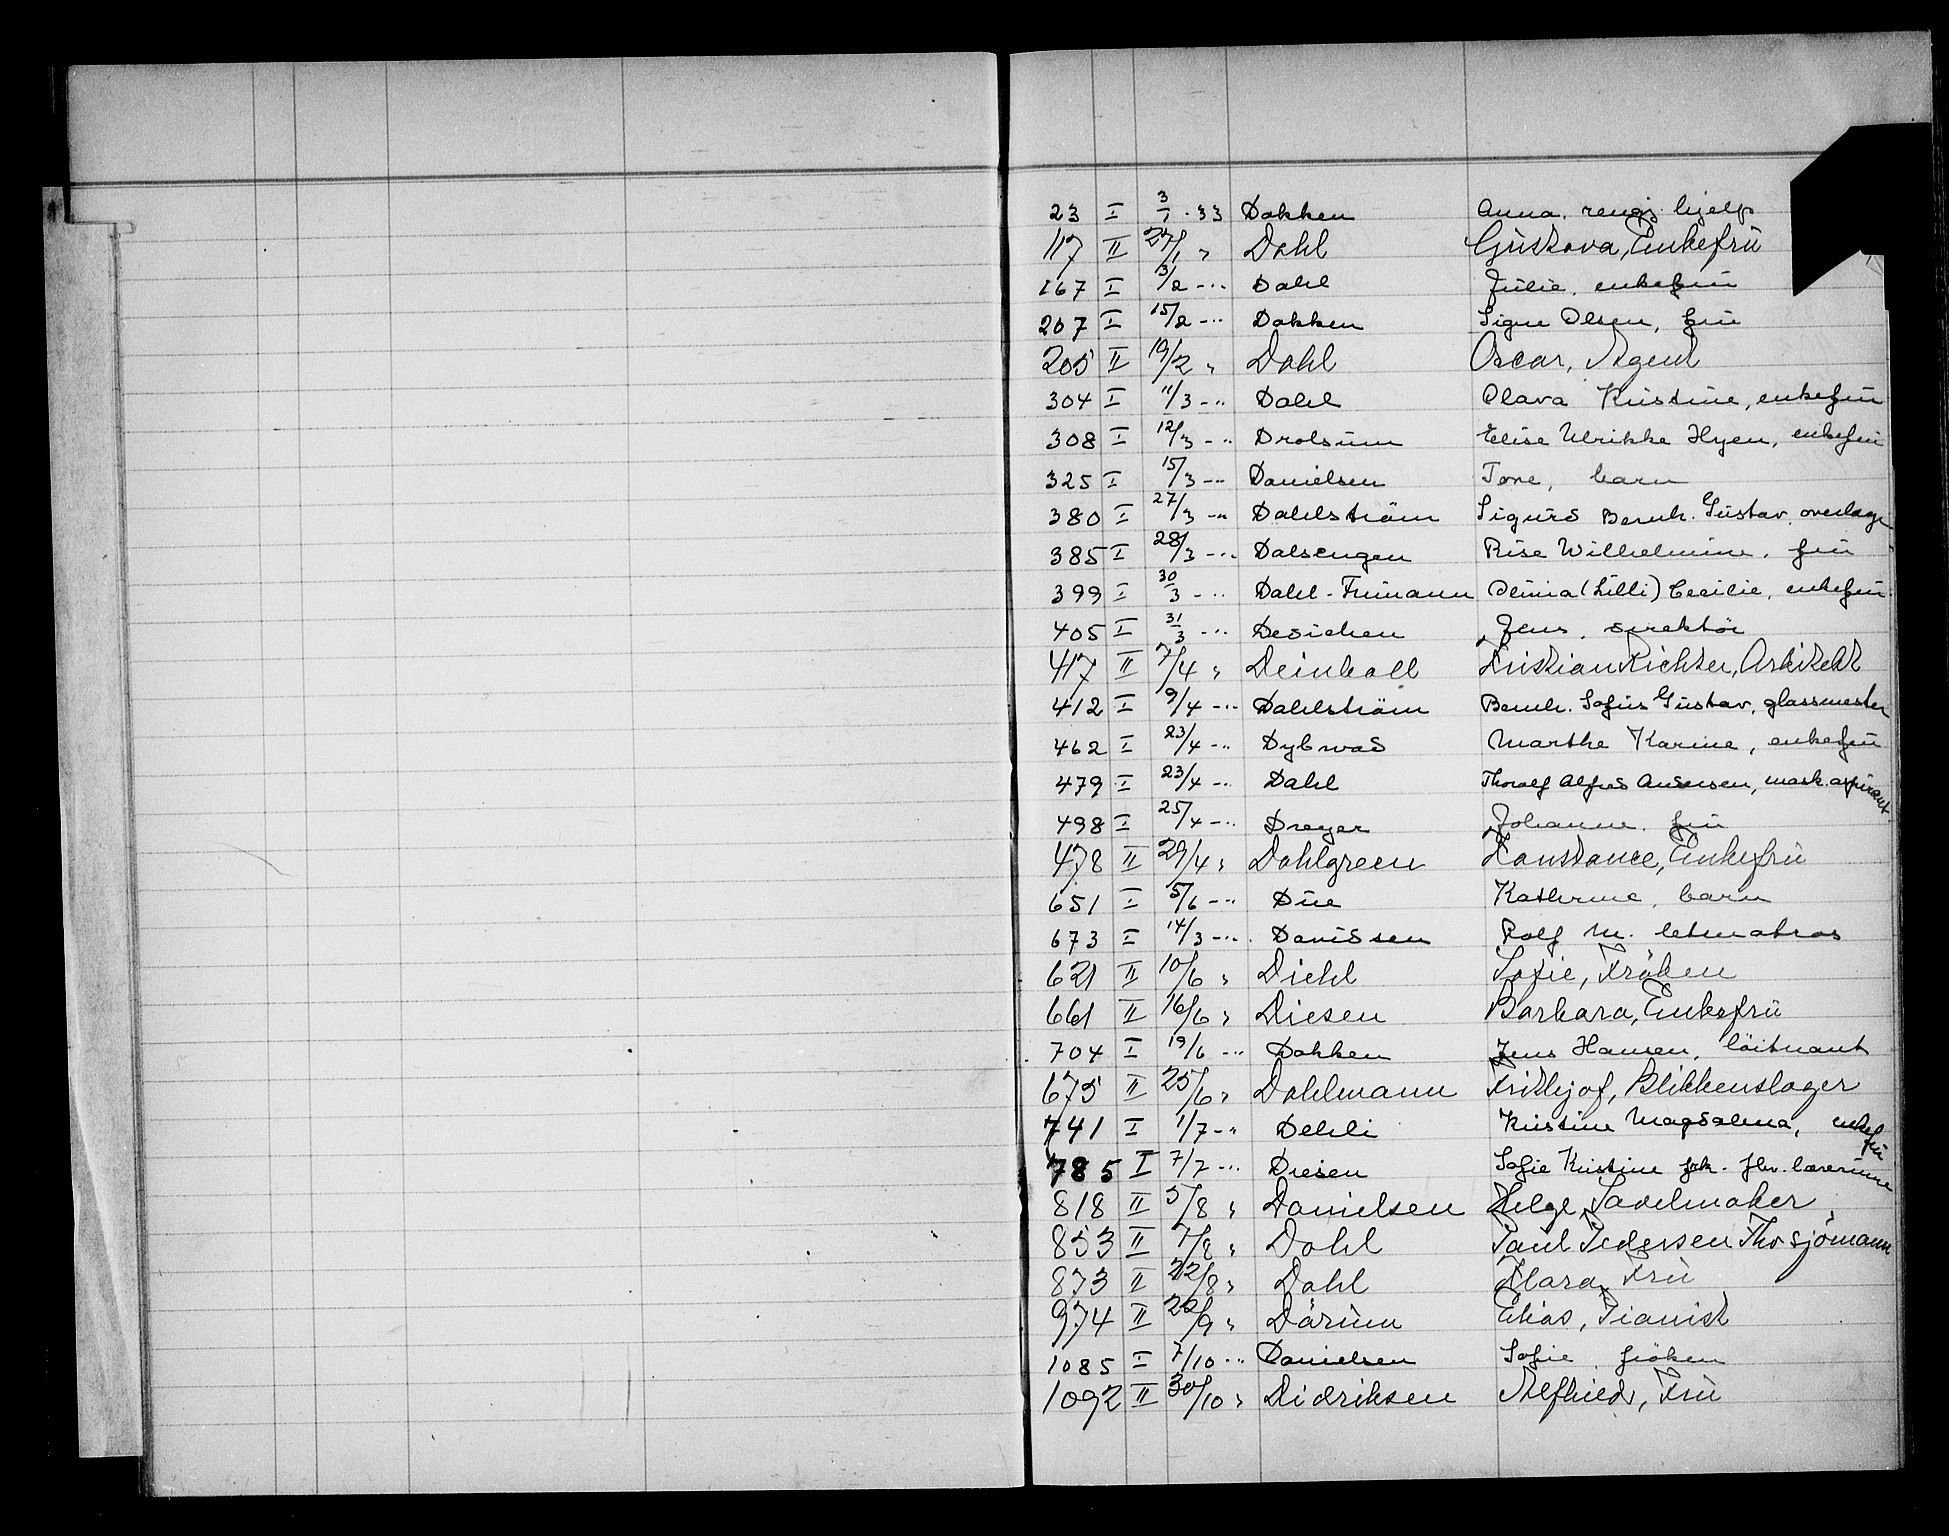 23 I 3/1 . 33 Dokken Anna, rengj. hjelp
117 II 27/1 " Dahl Gustava, Enkefrü
167 I 3/2 - " Dahl Julie, enkefrü
207 I 15/2 - " Dokken Signe Olsen, frü
205 II 19/2 " Dahl Oscar, Agent
304 I 11/3 - " Dahl Olava Kristine, enkefrü
308 I 12/3 - " Drolsüm Elise Ulrikke Hyen, enkefrü
325 I 15/3 - " Danielsen Tore, barn
380 I 27/3 - " Dahlström Sigurd Bernh. Güstav, overlage
385 I 28/3 - " Dalsengen Rise Wilhelmine, frü
399 I 30/3 - " Dahl-Frimann Olivia (Lilli) Cecilie, enkefrü
405 I 31/3 - " Desichen Jens, direktör
417 II 7/4 " Deinboll Kristian Richter, Arkitekt
412 I 9/4 - " Dahlström Bernh. Sofus Güstav, glassmester
462 I 23/4 - " Dybwad Marthe Karine, enkefrü
479 I 23/4 - " Dahl Thoralf Alfred Andersen, mask.aspirant
498 I 25/4 - " Dreyer Johanne, frü
478 II 29/4 " Dahlgreen Konstance, Enkefrü
651 I 5/6 - " Düe Kathrine, barn
673 I 14/3 - " Davidsen Rolf M. letmatros
621 II 10/6 " Diehl Sofie, Fröken
661 II 16/6 " Diesen Barbara, Enkefrü
704 I 19/6 - " Dokken Jens Hansen, löitnant
675 II 25/6 " Dahlmann Frithjof, Blikkenslager
741 I 1/7 - " Dehli Kristine Magdalena, enkefrü
785 I 7/7 - " Diesen Sofie Kristine frk. fhv. lærerinne
818 II 5/8 " Danielsen Helge, Sadelmaker
853 II 7/8 " Dahl Paul Pedersen Thv sjömann
873 II 22/8 " Dahl Klara, Frü
974 II 22/9 " Dörum Elias, Pianist
1085 I 7/10 " Danielsen Sofie, fröken
1092 II 30/10 " Didriksen Alfhild, Frü